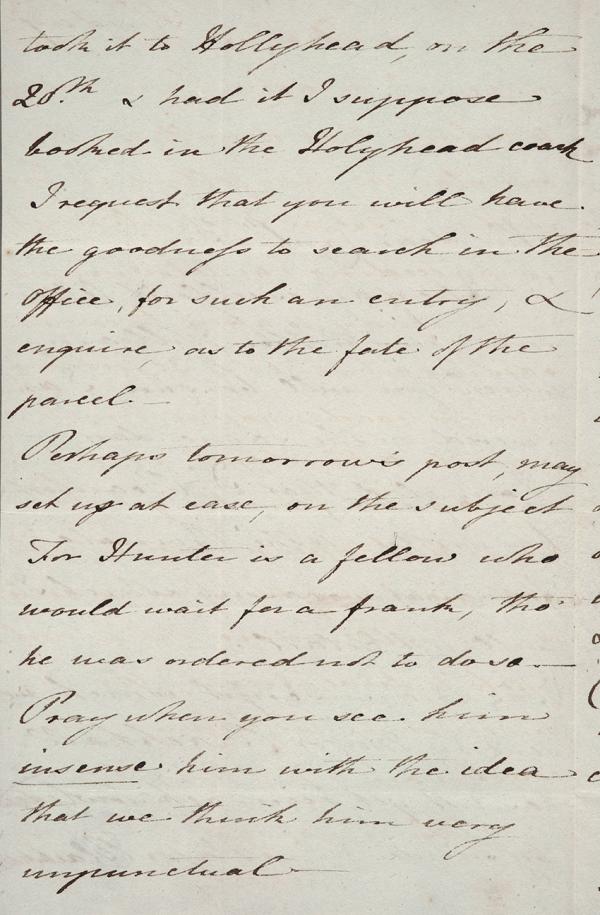 took it to Hollyhead, on the
20th. & had it I suppose
booked in the Holyhead coach
I request that you will have
the goodness to search in the
office, for such an entry, &
enquire, as to the fate of the
parcel.—
Perhaps tomorrow's post, may
set us at ease, on the subject
For Hunter is a fellow who
would wait for a frank, tho'
he was ordered not to do so.—
Pray when you see him
insense him with the idea
that we think him very
unpunctual—